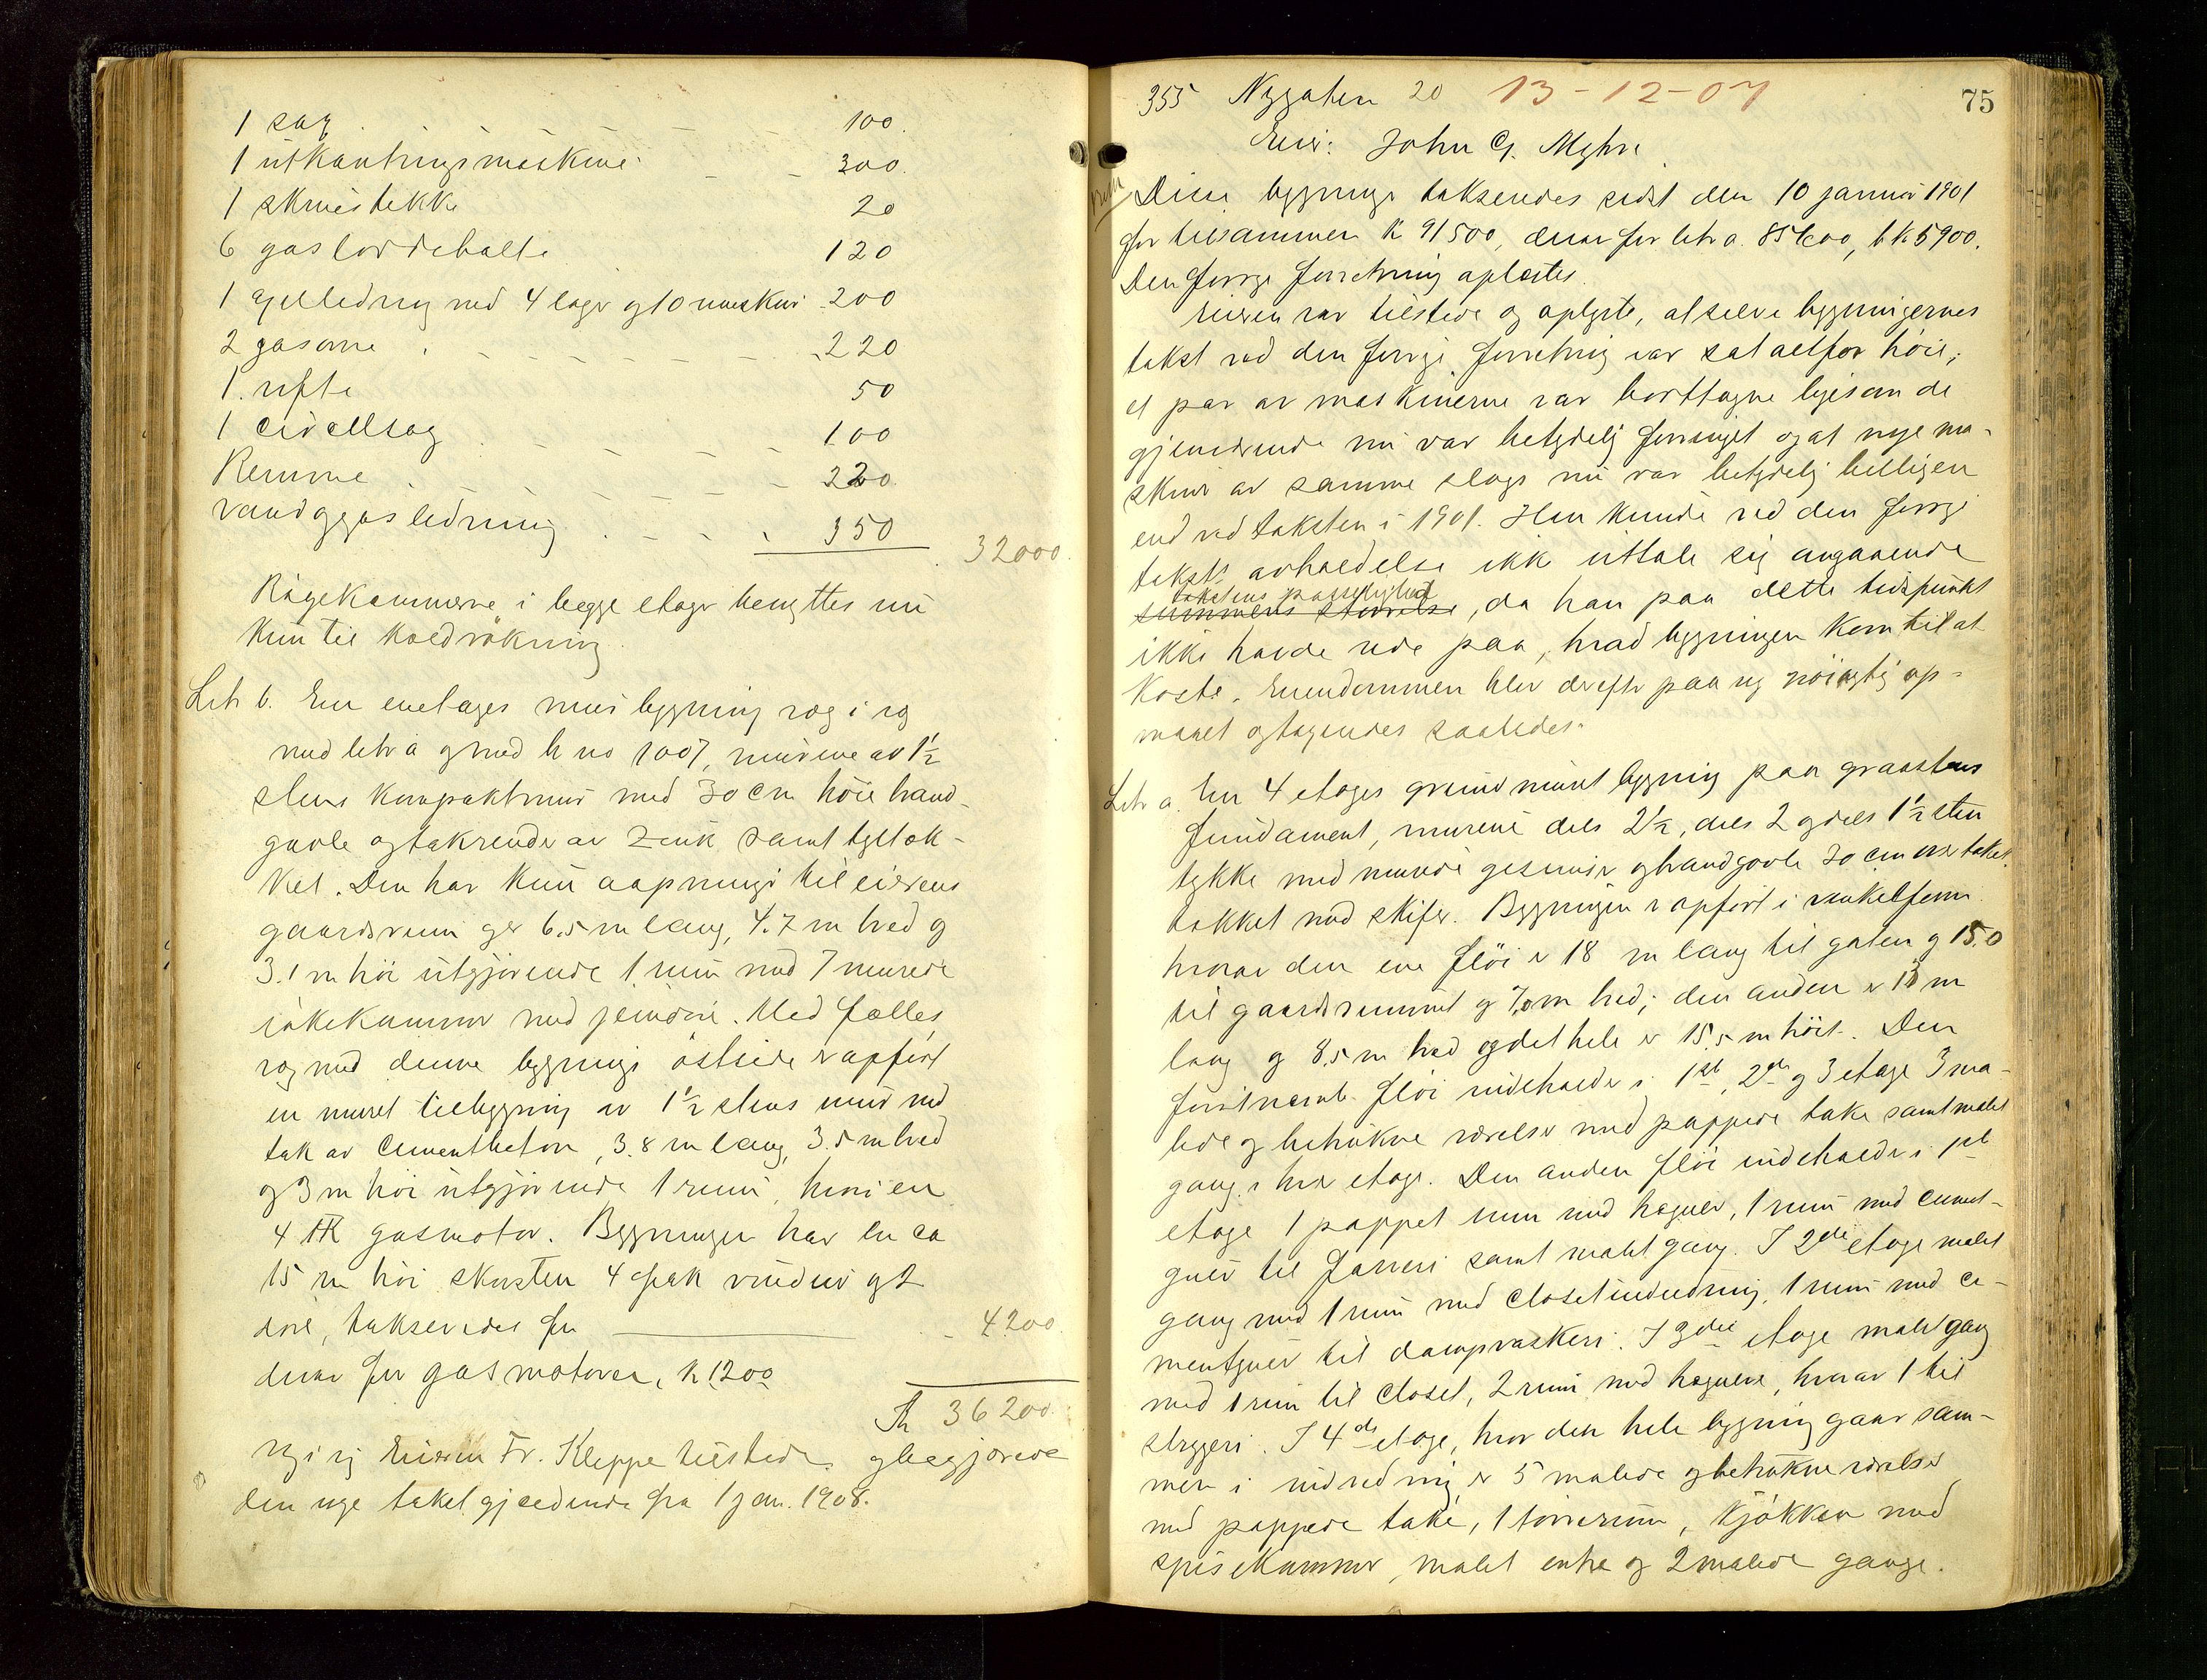 1 sag 100.
1 utkantningsmaskine 300.
1 skruestikke 20
6 gasloddebolte 120
1 axelledning med 4 lager og 10 remskiver 200
2 gasovne 220
1 vifte 50
1 cirkelsag 100
Remmer 220
vand og gasledning 350
32000.
Røgekamrene i begge etager benyttes nu
kun til koldrøkning.
Litr b. En enetages murbygning væg i væg
med litr a og med br no 1007, murene av 1½
stens kompaktmur med 30 cm høie brand-
gavle og takrender av zink samt tegltæk-
ket. Den har kun aapninger til eierens
gaardsrum og er 6.5 m lang, 4.7 m bred og
3.1 m høi utgjørende 1 rum med 7 murede
røkekammer med jerndøre. Med fælles
væg med denne bygnings østside er opført
en muret tilbygning av 1½ stens mur med
tak av cementbeton, 3.8 m lang, 3.5 m bred
og 3 m høi utgjørende 1 rum, hvori en
4 HK gasmotor. Bygningen har en ca
15 m høi skorsten 4 fak vinduer og 2
døre, takseredes for 4200
derav for gasmotoren, k 1200
Kr 36200
Eieren Fr. Kleppe tilstede og begjærede
den nye takst gjældende fra 1 jan. 1908.
75
355 Nygaten 20 13-12-07
Eier: John G. Myhre
Disse bygninger takseredes sidst den 10 januar 1901
for tilsammen k 91500, derav for litr a. 85600, b k 5900.
Den forrige forretning oplæstes.
Eieren var tilstede og oplyste, at selve bygningernes
takst ved den forrige forretning var sat altfor høit;
et par av maskinerne var borttagne likesom de
gjenværende nu var betydelig forringet og at nye ma-
skiner av samme slags nu var betydelig billigere
end ved taksten i 1901. Han kunde ved den forrige
taksts avholdelse ikke uttale sig angaaende
takstens passelighet
summens størrelse, da han paa dette tidspunkt
ikke havde rede paa, hvad bygningen kom til at
koste. Eiendommen blev derefter paa ny nøiagtig op-
maalt og takseredes saaledes:
Litr a. En 4 etages grundmuret bygning paa graastens
fundament, murene dels 2½, dels 2 og dels 1½ sten
tykke med murede gesimser og brandgavle 30 cm over taket,
tækket med skifer. Bygningen er opført i vinkelform
hvorav den ene fløi er 18 m lang til gaten og 15.0
til gaardsrummet og 7.0 m bred; den anden er 13 m
lang og 8.5 m bred og det hele er 15.5 m høit. Den
førstnævnte fløi indeholder i 1ste, 2den og 3 etage 3 ma-
lede og betrukne værelser med pappede take samt malet
gang i hver etage. Den anden fløi indeholder i 1ste
etage 1 pappet rum med trægulv, 1 rum med cement-
gulv til farveri samt malet gang. I 2den etage malet
gang med 1 rum med closetindredning, 1 rum med ce-
mentgulv til dampvaskeri. I 3die etage malet gang
med 1 rum til closet, 2 rum med trægulve, hvorav 1 til
strygeri. I 4de etage, hvor den hele bygning gaar sam-
men i indredning er 5 malede og betrukne værelser
med pappede take, 1 tørrerum, kjøkken med
spisekammer, malet entre og 2 malede gange.